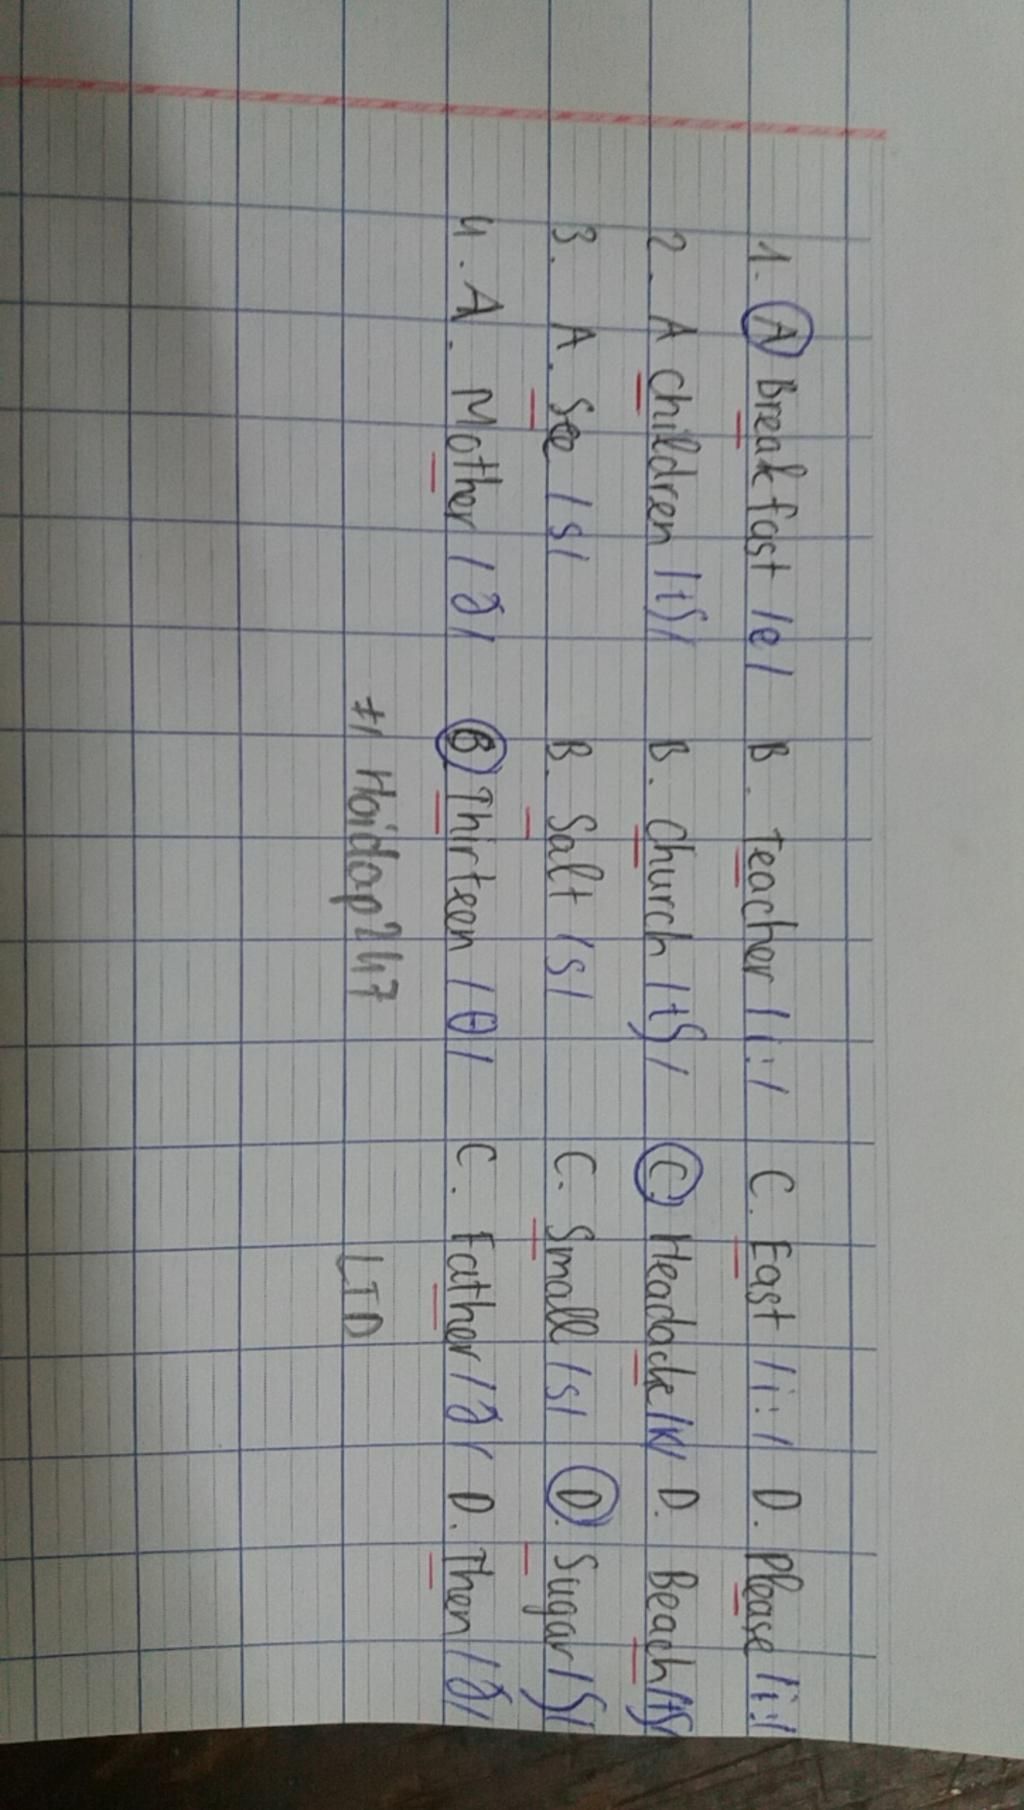 1. A Breakfast /e/ B. Teacher /i:/ C. East /i:/ D. Please /i:/
2. A children /tʃ/ B. Church /tʃ/ C. Headache /k/ D. Beach /tʃ/
3. A. See /s/ B. Salt /s/ C. Small /s/ D. Sugar /ʃ/
4. A. Mother /ð/ B Thirteen /θ/ C. Father /ð/ D. Then /ð/
#Hoidap247 LTD